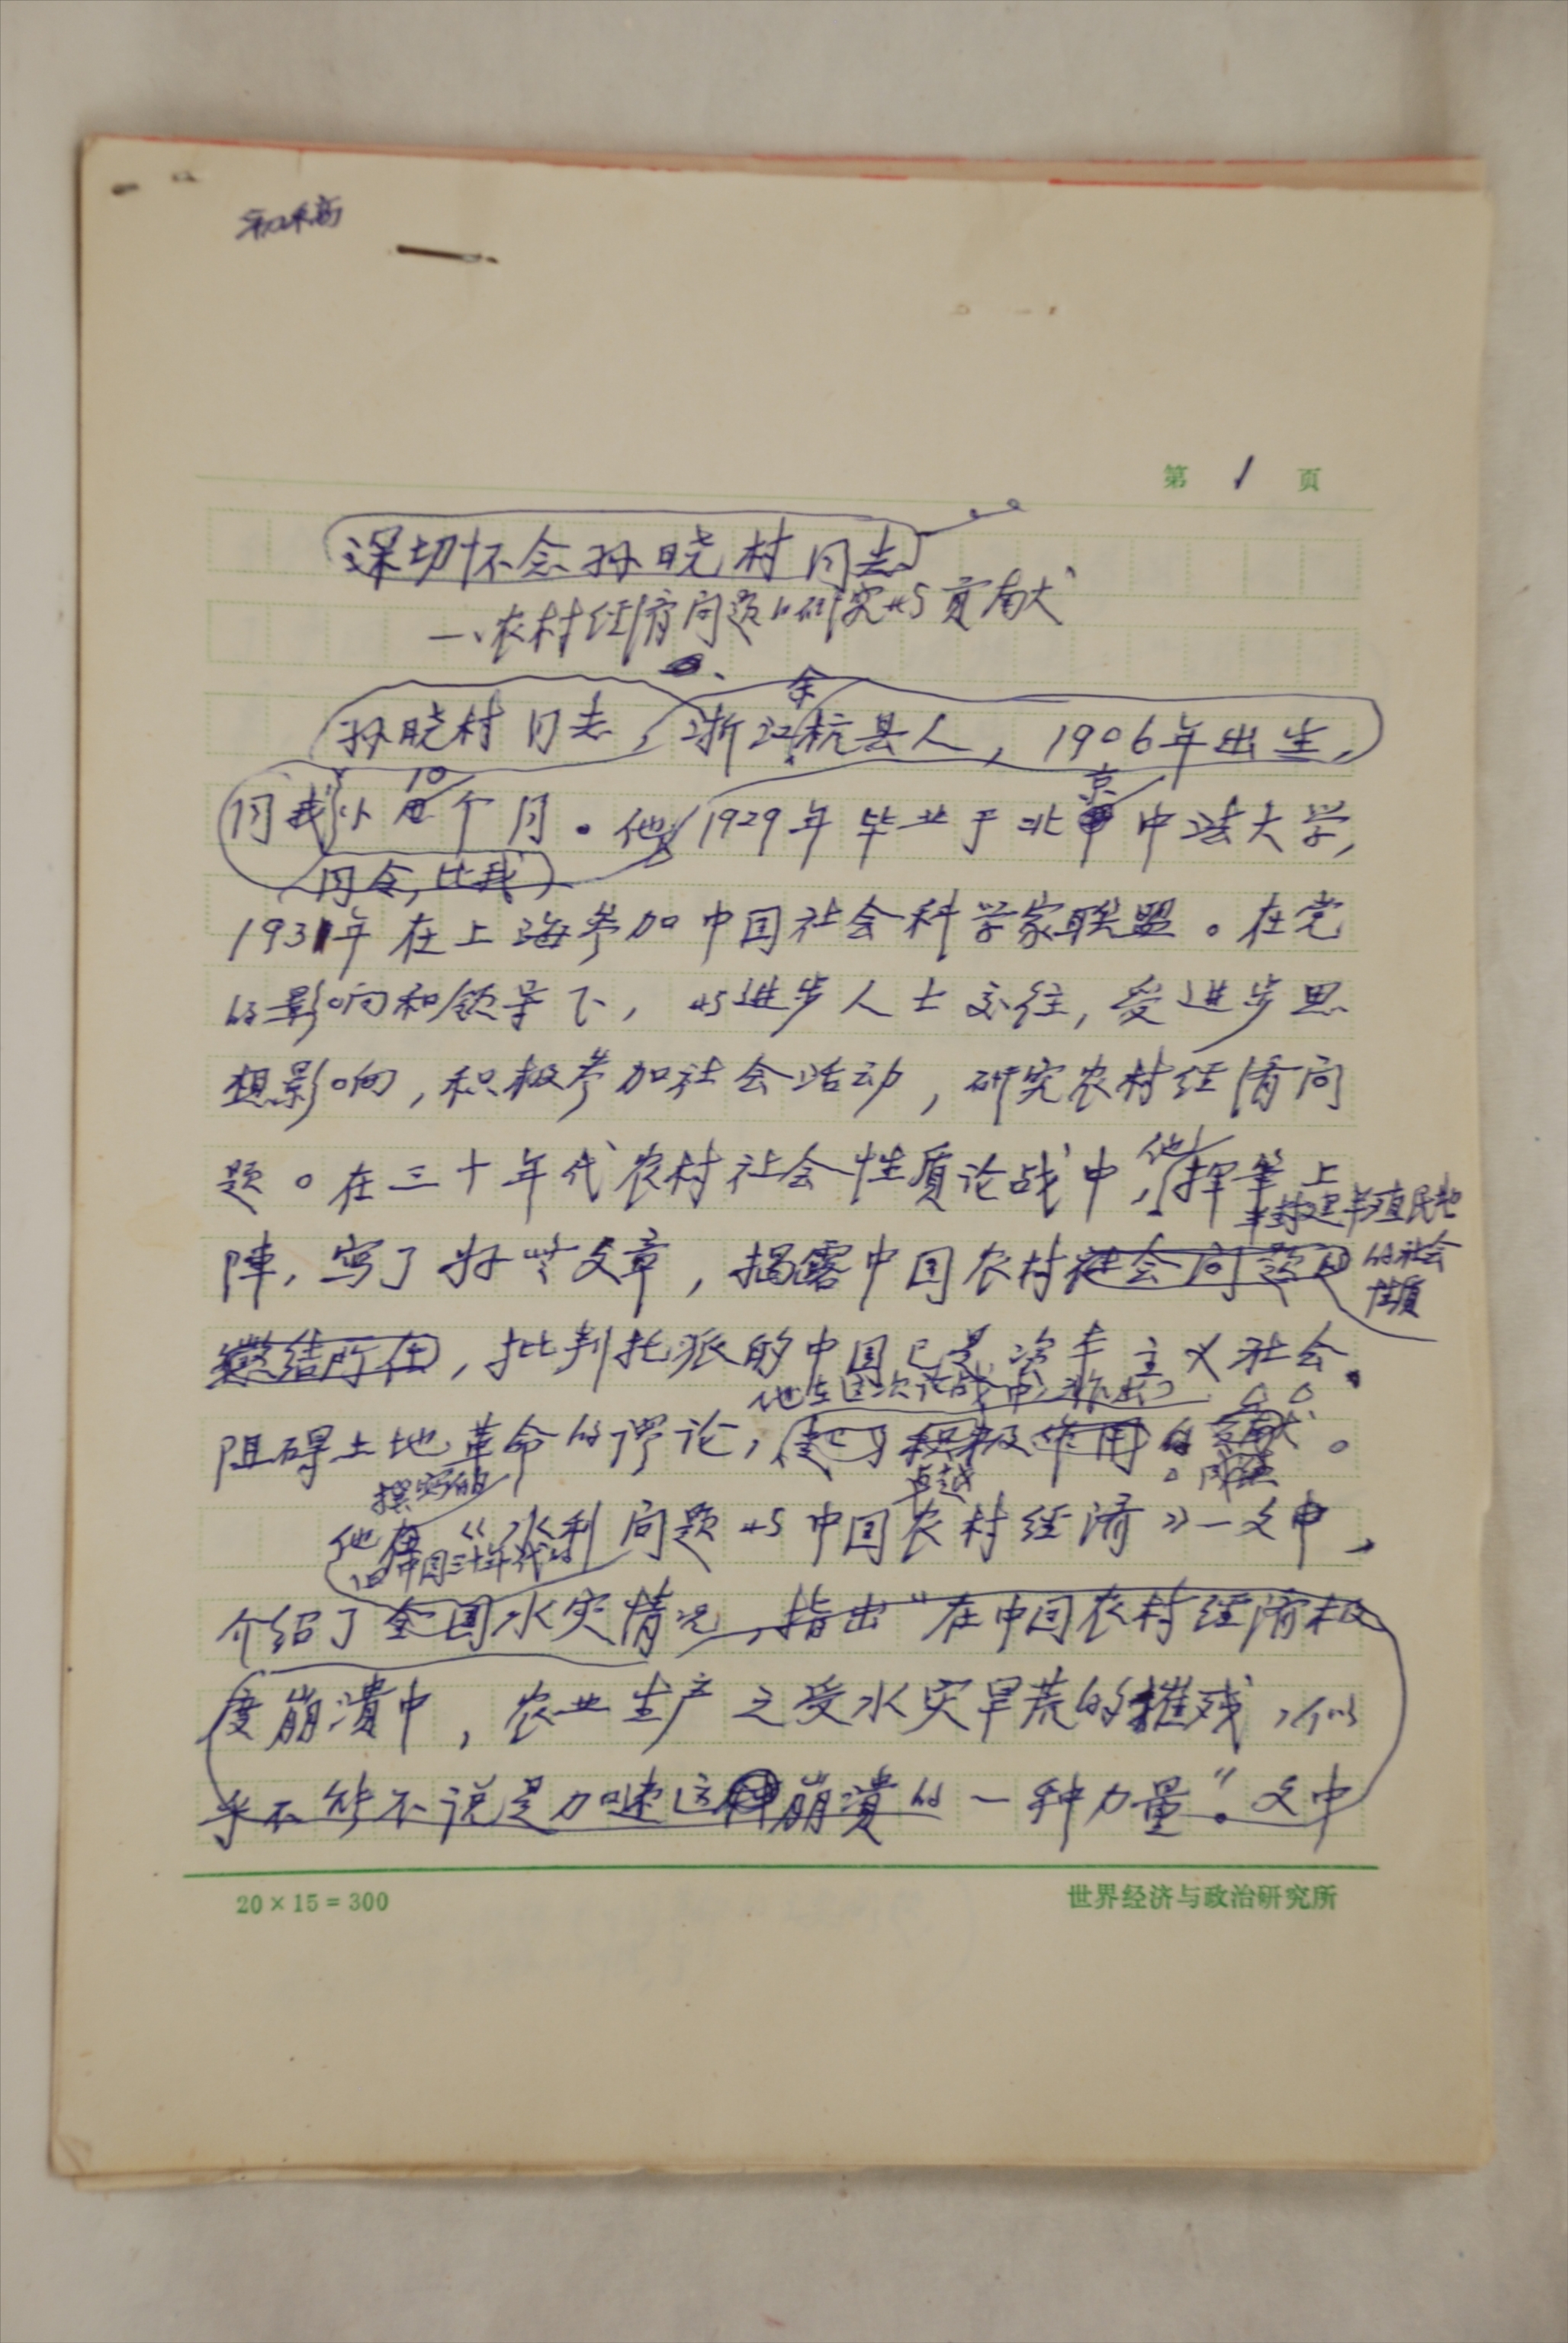 初稿
第 1 页
深切怀念孙晓村同志
一、农村经济问题的研究与贡献
余
孙晓村同志,浙江杭县人,1906年出生,
10 京
同我小 个月。他1929年毕业于北 中法大学,
同令,比我
1931年在上海参加中国社会科学家联盟。在党
的影响和领导下,与进步人士交往,受进步思
想影响,积极参加社会活动,研究农村经济问
他
题。在三十年代农村社会性质论战中,挥笔上
半封建半殖民地
阵,写了好些文章,揭露中国农村社会问题的
的社会
性质
症结所在,批判托派的中国已是资本主义社会、
他在这次论战中作出了
阻碍土地革命的谬论,起了积极作用的贡献。
卓越
撰写的
他在《水利问题与中国农村经济》一文中,
旧中国三十年代的
介绍了全国水灾情况,指出“在中国农村经济极
度崩溃中,农业生产之受水灾旱荒的摧残,似
乎不能不说是加速这种崩溃的一种力量”。文中
20×15=300
世界经济与政治研究所